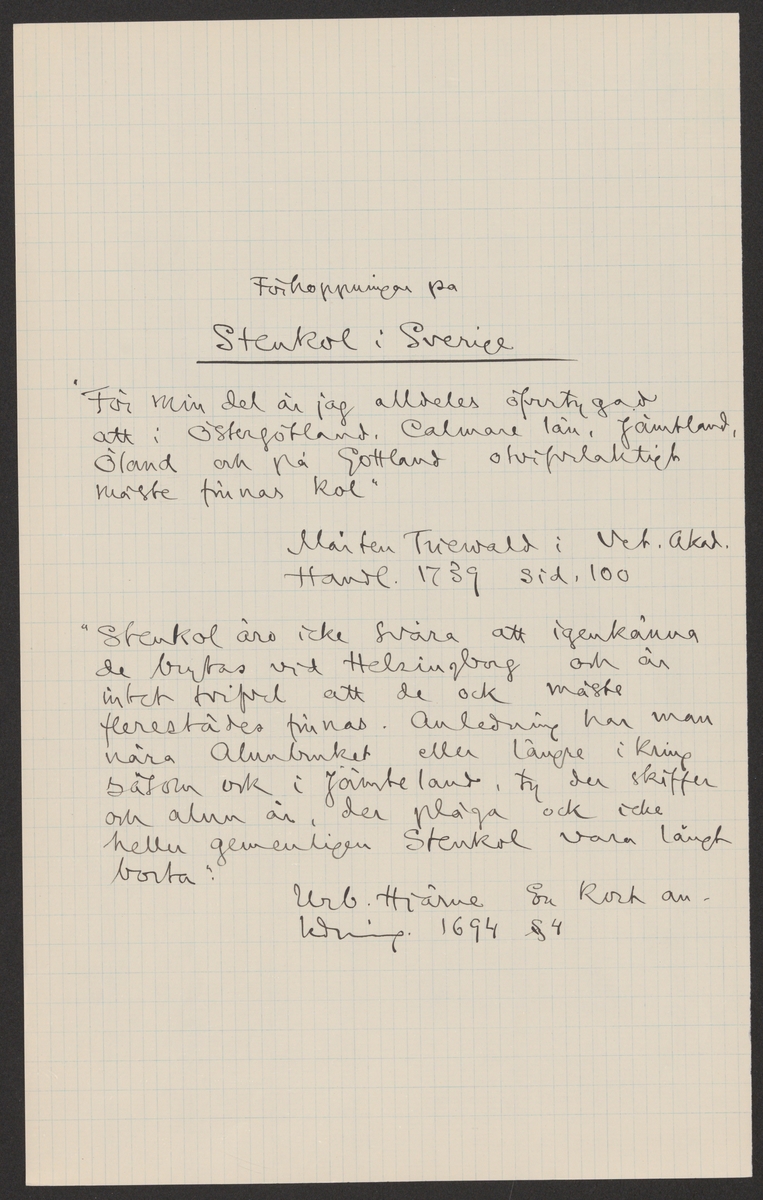 Förhoppningar på
Stenkol i Sverige
"För min del är jag alldeles öfvertygad
att i Östergötland, Calmare län, Jämtland,
Öland och på Gottland otvifvelaktigt
måste finnas kol"
Mårten Triewald i Vet. Akad.
Handl. 1739 sid. 100
"Stenkol äro icke svåra att igenkänna
de brytas vid Helsingborg och är
intet tvifvel att de ock måste
flerestädes finnas. Anledning har man
nära Alunbruket eller längre ikring
såsom ock i Jämteland, ty der skiffer
och alun är, der pläga ock icke
heller gemenligen Stenkol vara långt
borta".
Urb. Hjärne En kort an-
ledning. 1694 § 4